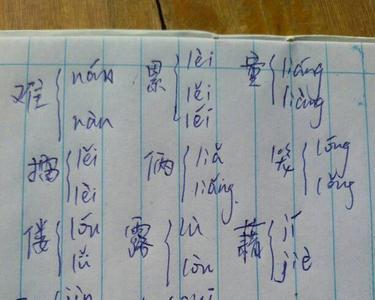 难 nán nàn
累 lèi lěi léi
量 liáng liàng
擂 lěi lèi
俩 liǎ liǎng
笼 lóng lǒng
偻 lóu lǚ
露 lù lòu
藉 jí jiè